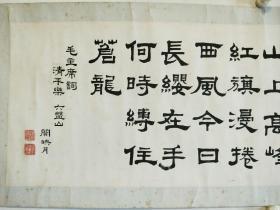 山上高峰
紅旗漫捲
西風今日
長纓在手
何時縛住
蒼龍
毛主席詞
清平樂 六盤山
關映月